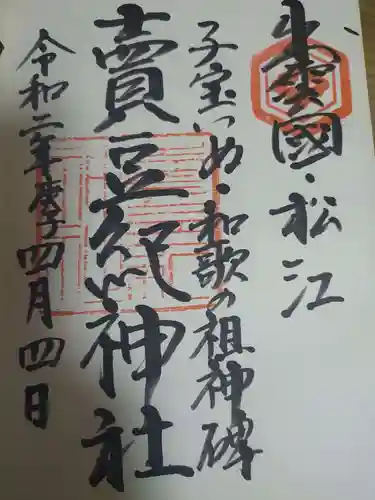 出雲國・松江
子宝いぬ・和歌の祖神碑
賣豆紀神社
令和二年庚子四月四日